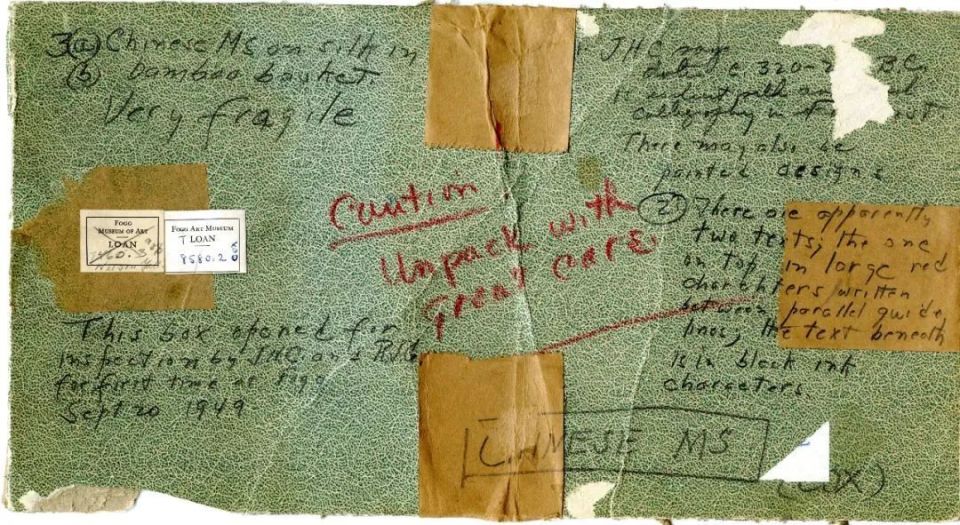 3(a) Chinese Ms on silk in
(b) bamboo basket
Very fragile
Caution
Unpack with
great care.
FOGG
MUSEUM OF ART
LOAN
FOGG ART MUSEUM
LOAN
8580.2
This box opened for
inspection by JHC and
for first time at Fogg
Sept 20 1949
JHC says
date c 320-
B.C.
calligraphy in
There may also be
painted designs
(2) There are apparently
two texts; the one
on top in large red
characters written
between parallel guide
lines; the text beneath
is in black ink
characters.
CHINESE MS
(COX)